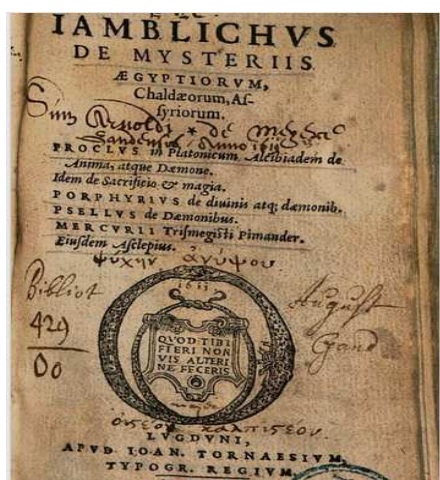 IAMBLICHVS
DE MYSTERIIS
ÆGYPTIORVM,
Chaldæorum, Aſ-
ſyriorum.
Sum Arnoldi de
Anno
PROCLVS in Platonicum Alcibiadem de
Anima, atque Dæmone.
Idem de Sacrificio & magia.
PORPHYRIVS de diuinis atq; dæmonib.
PSELLVS de Dæmonibus.
MERCVRII Triſmegiſti Pimander.
Eiuſdem Aſclepius.
ψυχὴν ἀνύψου
1611
Bibliot
429
Do
August
Gand
QVOD TIBI
FIERI NON
VIS ALTERI
NE FECERIS
LVGDVNI,
APVD IOAN. TORNAESIVM,
TYPOGR. REGIVM